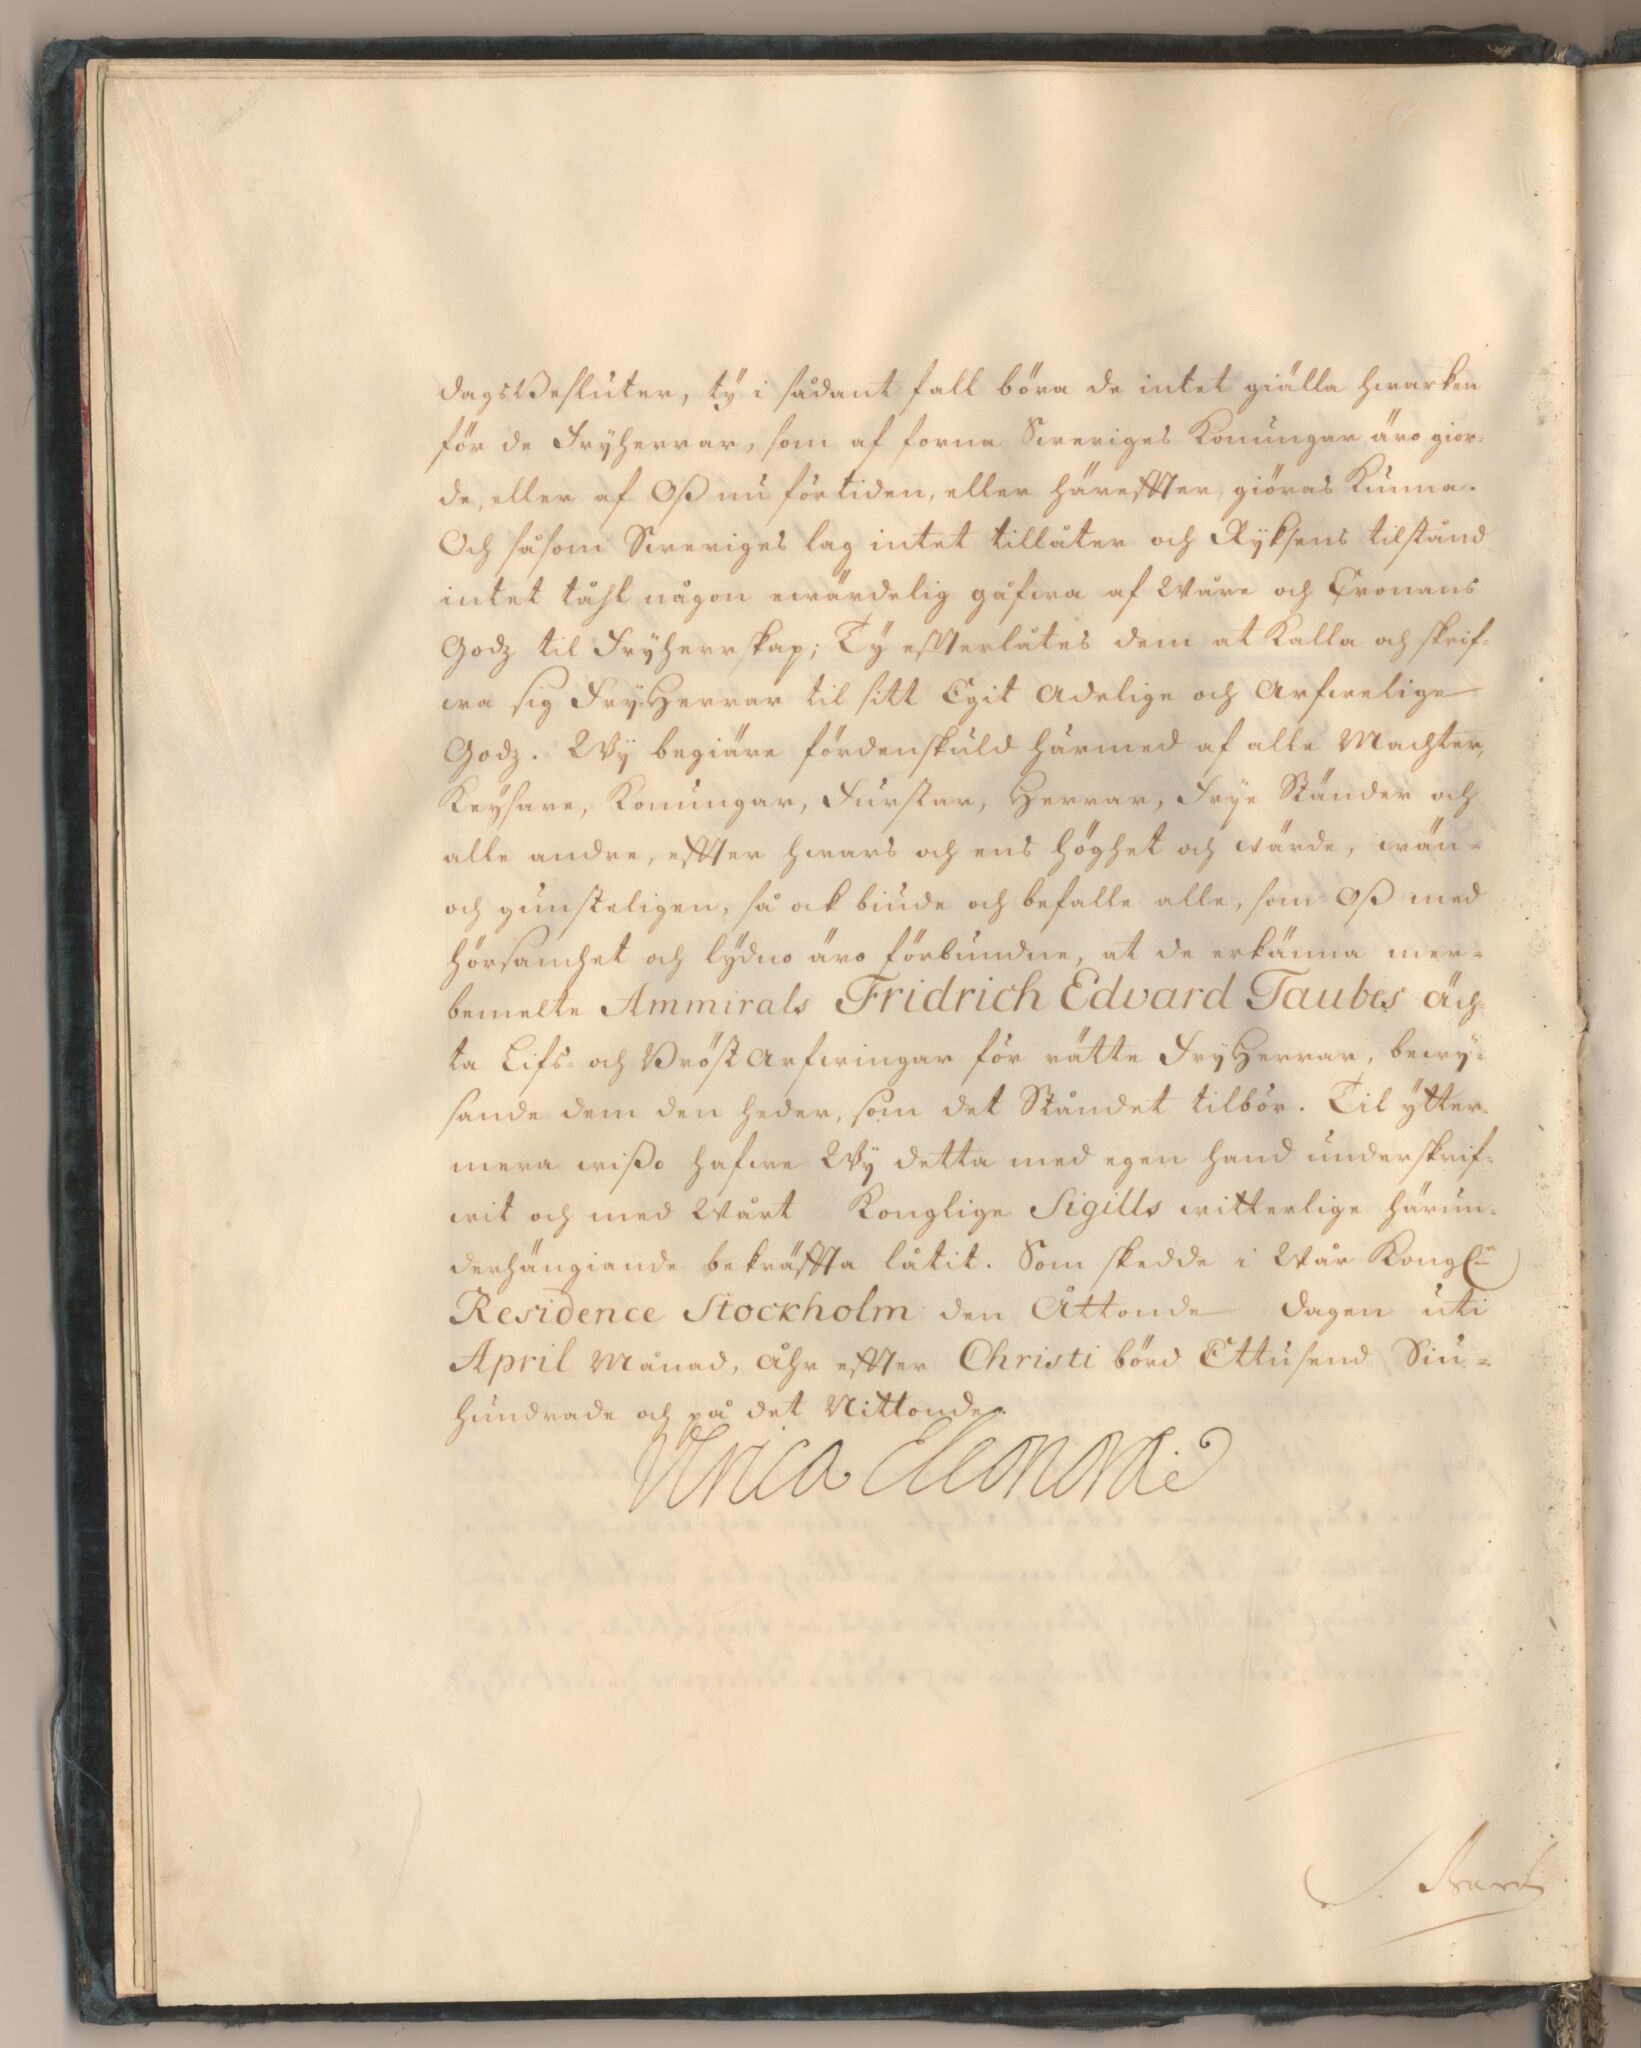 dagsBesluter, ty i sådant fall böra de intet giälla hwarken
för de Fryherrar, som af forna Sweriges Konungar äro gior-
de, eller af Oß nu förtiden, eller häreffter, giöras Kunna.
Och såsom Sweriges lag intet tillåter och Ryksens tilstånd
intet tåhl någon ewärdelig gåfwa af Wåre och Cronans
Godz til Fryherrskap; Ty effterlåtes dem at Kalla och skrif-
wa sig FryHerrar til sitt Egit Adelige och Arfwelige
Godz. Wy begiäre fördenskuld härmed af alle Machter,
Keysare, Konungar, Furstar, Herrar, Frye Ständer och
alle andre, effter hwars och ens höghet och wärde, wän-
och gunsteligen, så ock biude och befalle alle, som Oß med
hörsamhet och lydno äro förbundne, at de erkänna mer-
bemelte Ammirals Fridrich Edvard Taubes Äch-
ta Lifs- och BröstArfwingar för rätte FryHerrar, bewy-
sande dem den heder, som det Ståndet tilbör. Til ytter-
mera wißo hafwe Wy detta med egen hand underskrif-
wit och med Wårt Konglige Sigills witterlige härun-
derhängiande bekräffta låtit. Som skedde i Wår Kongl:e
Residence Stockholm den Åttonde dagen uti
April Månad, åhr effter Christi börd Ettusend Siu-
hundrade och på det Nittonde.
Ulrica Eleonora